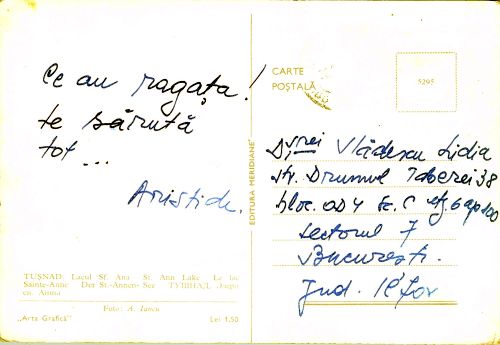 Ce au ragața!
te sărută
tot ...
Aristide.
TUȘNAD: Lacul Sf. Ana St. Ann Lake Le lac
Sainte-Anne Der St.-Annen-See ТУШНАД Озеро
св. Анна
Foto: A. Iancu
„Arta Grafică”
Lei 1.50
EDITURA MERIDIANE
CARTE
POȘTALĂ
5295
Vlădescu Lidia
str. Drumul Taberei 38
bloc. OD4 sc. C etj. 6 ap 100
Sectorul 7
București.
Jud. Ilfov